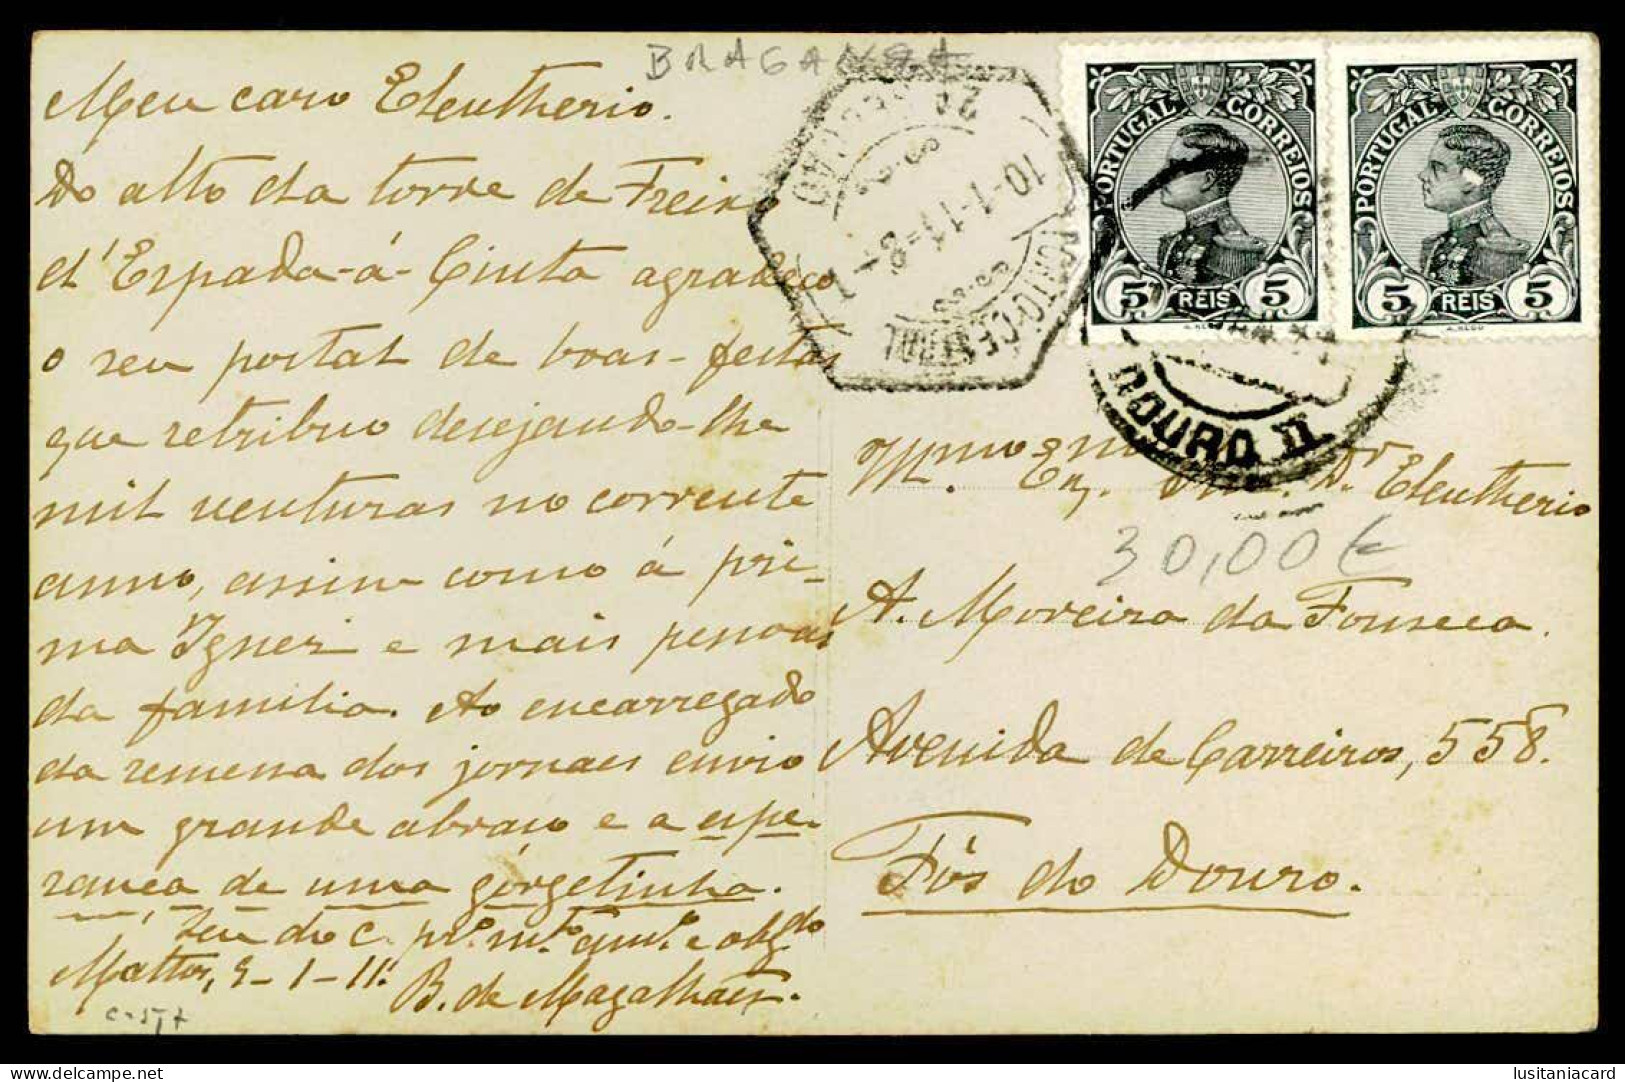 BRAGANÇA
Meu caro Eleutherio.
Do alto da torre de Freixo
d'Espada-á-Cinta agradeço
o seu postal de boas-festas
que retribuo desejando-lhe
mil venturas no corrente
anno, assim como á pri-
ma Ignez e mais pessoas
da familia. Ao encarregado
da remessa dos jornaes envio
um grande abraço e a espe-
rança de uma górgetinha.
Seu d. c. pr.º m.to am.º e obg.do
Mattos, 9-1-11. B. de Magalhães.
PORTO-CENTRAL
10-1-11-8
PORTUGAL CORREIOS
5 RÉIS 5
PORTUGAL CORREIOS
5 RÉIS 5
DOURO II
Ill.mo Ex.mo Snr. Dr. Eleutherio
30,00€
A. Moreira da Fonseca.
Avenida de Carreiros, 558.
Fós do Douro.
lusitaniacard